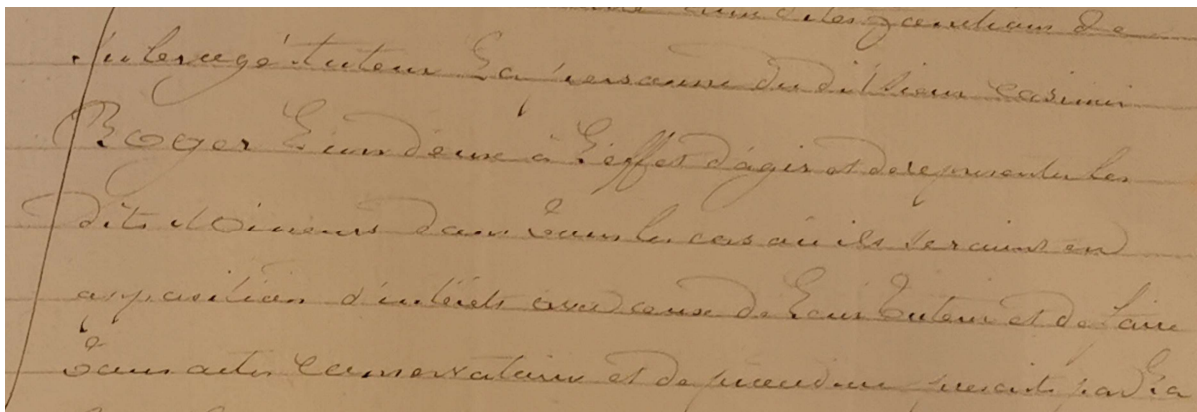 dites fonctions de
Subrogé tuteur la personne du dit Sieur Casimir
Roger l'un d'eux à l'effet d'agir et de representer les
dits Mineurs dans tous les cas où ils seraient en
opposition d'intérêts avec ceux de leur tuteur et de faire
tous actes conservatoires et de procedure prescrits par la